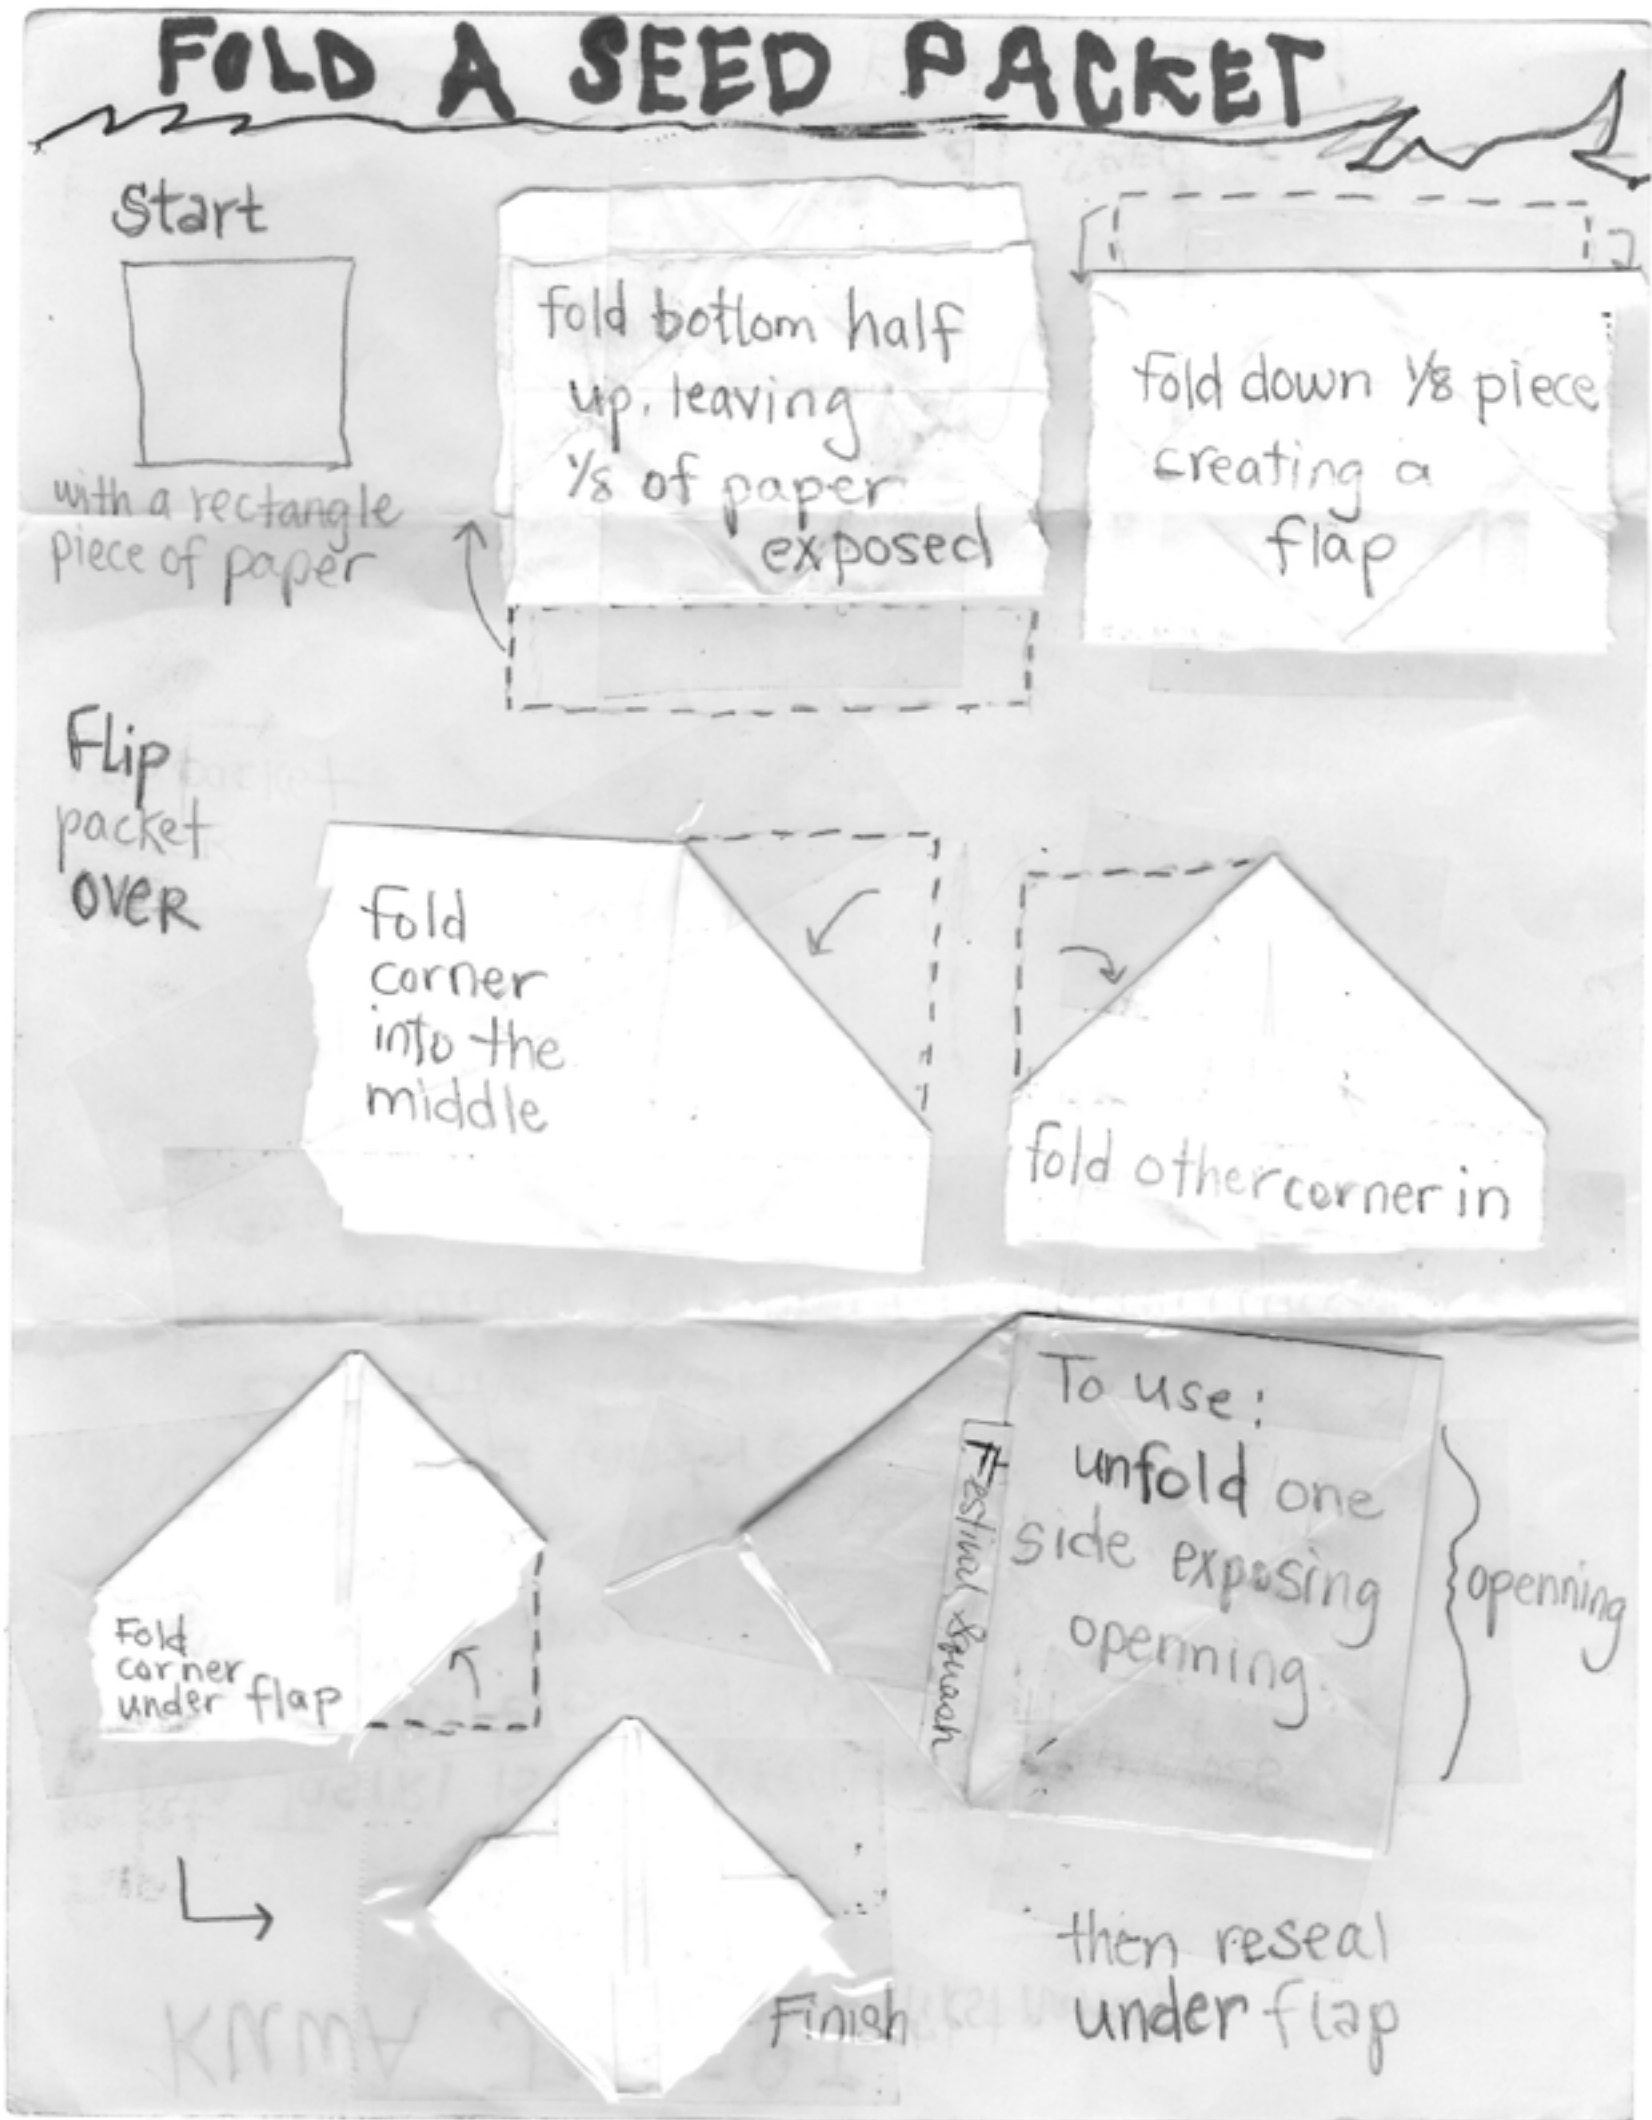 FOLD A SEED PACKET
Start
with a rectangle
piece of paper
fold bottom half
up. leaving
1/8 of paper
exposed
fold down 1/8 piece
creating a
flap
Flip
packet
OVER
fold
corner
into the
middle
fold other corner in
Fold
corner
under flap
To use:
unfold one
side exposing
openning.
Festival Squash
openning
Finish
then reseal
under flap